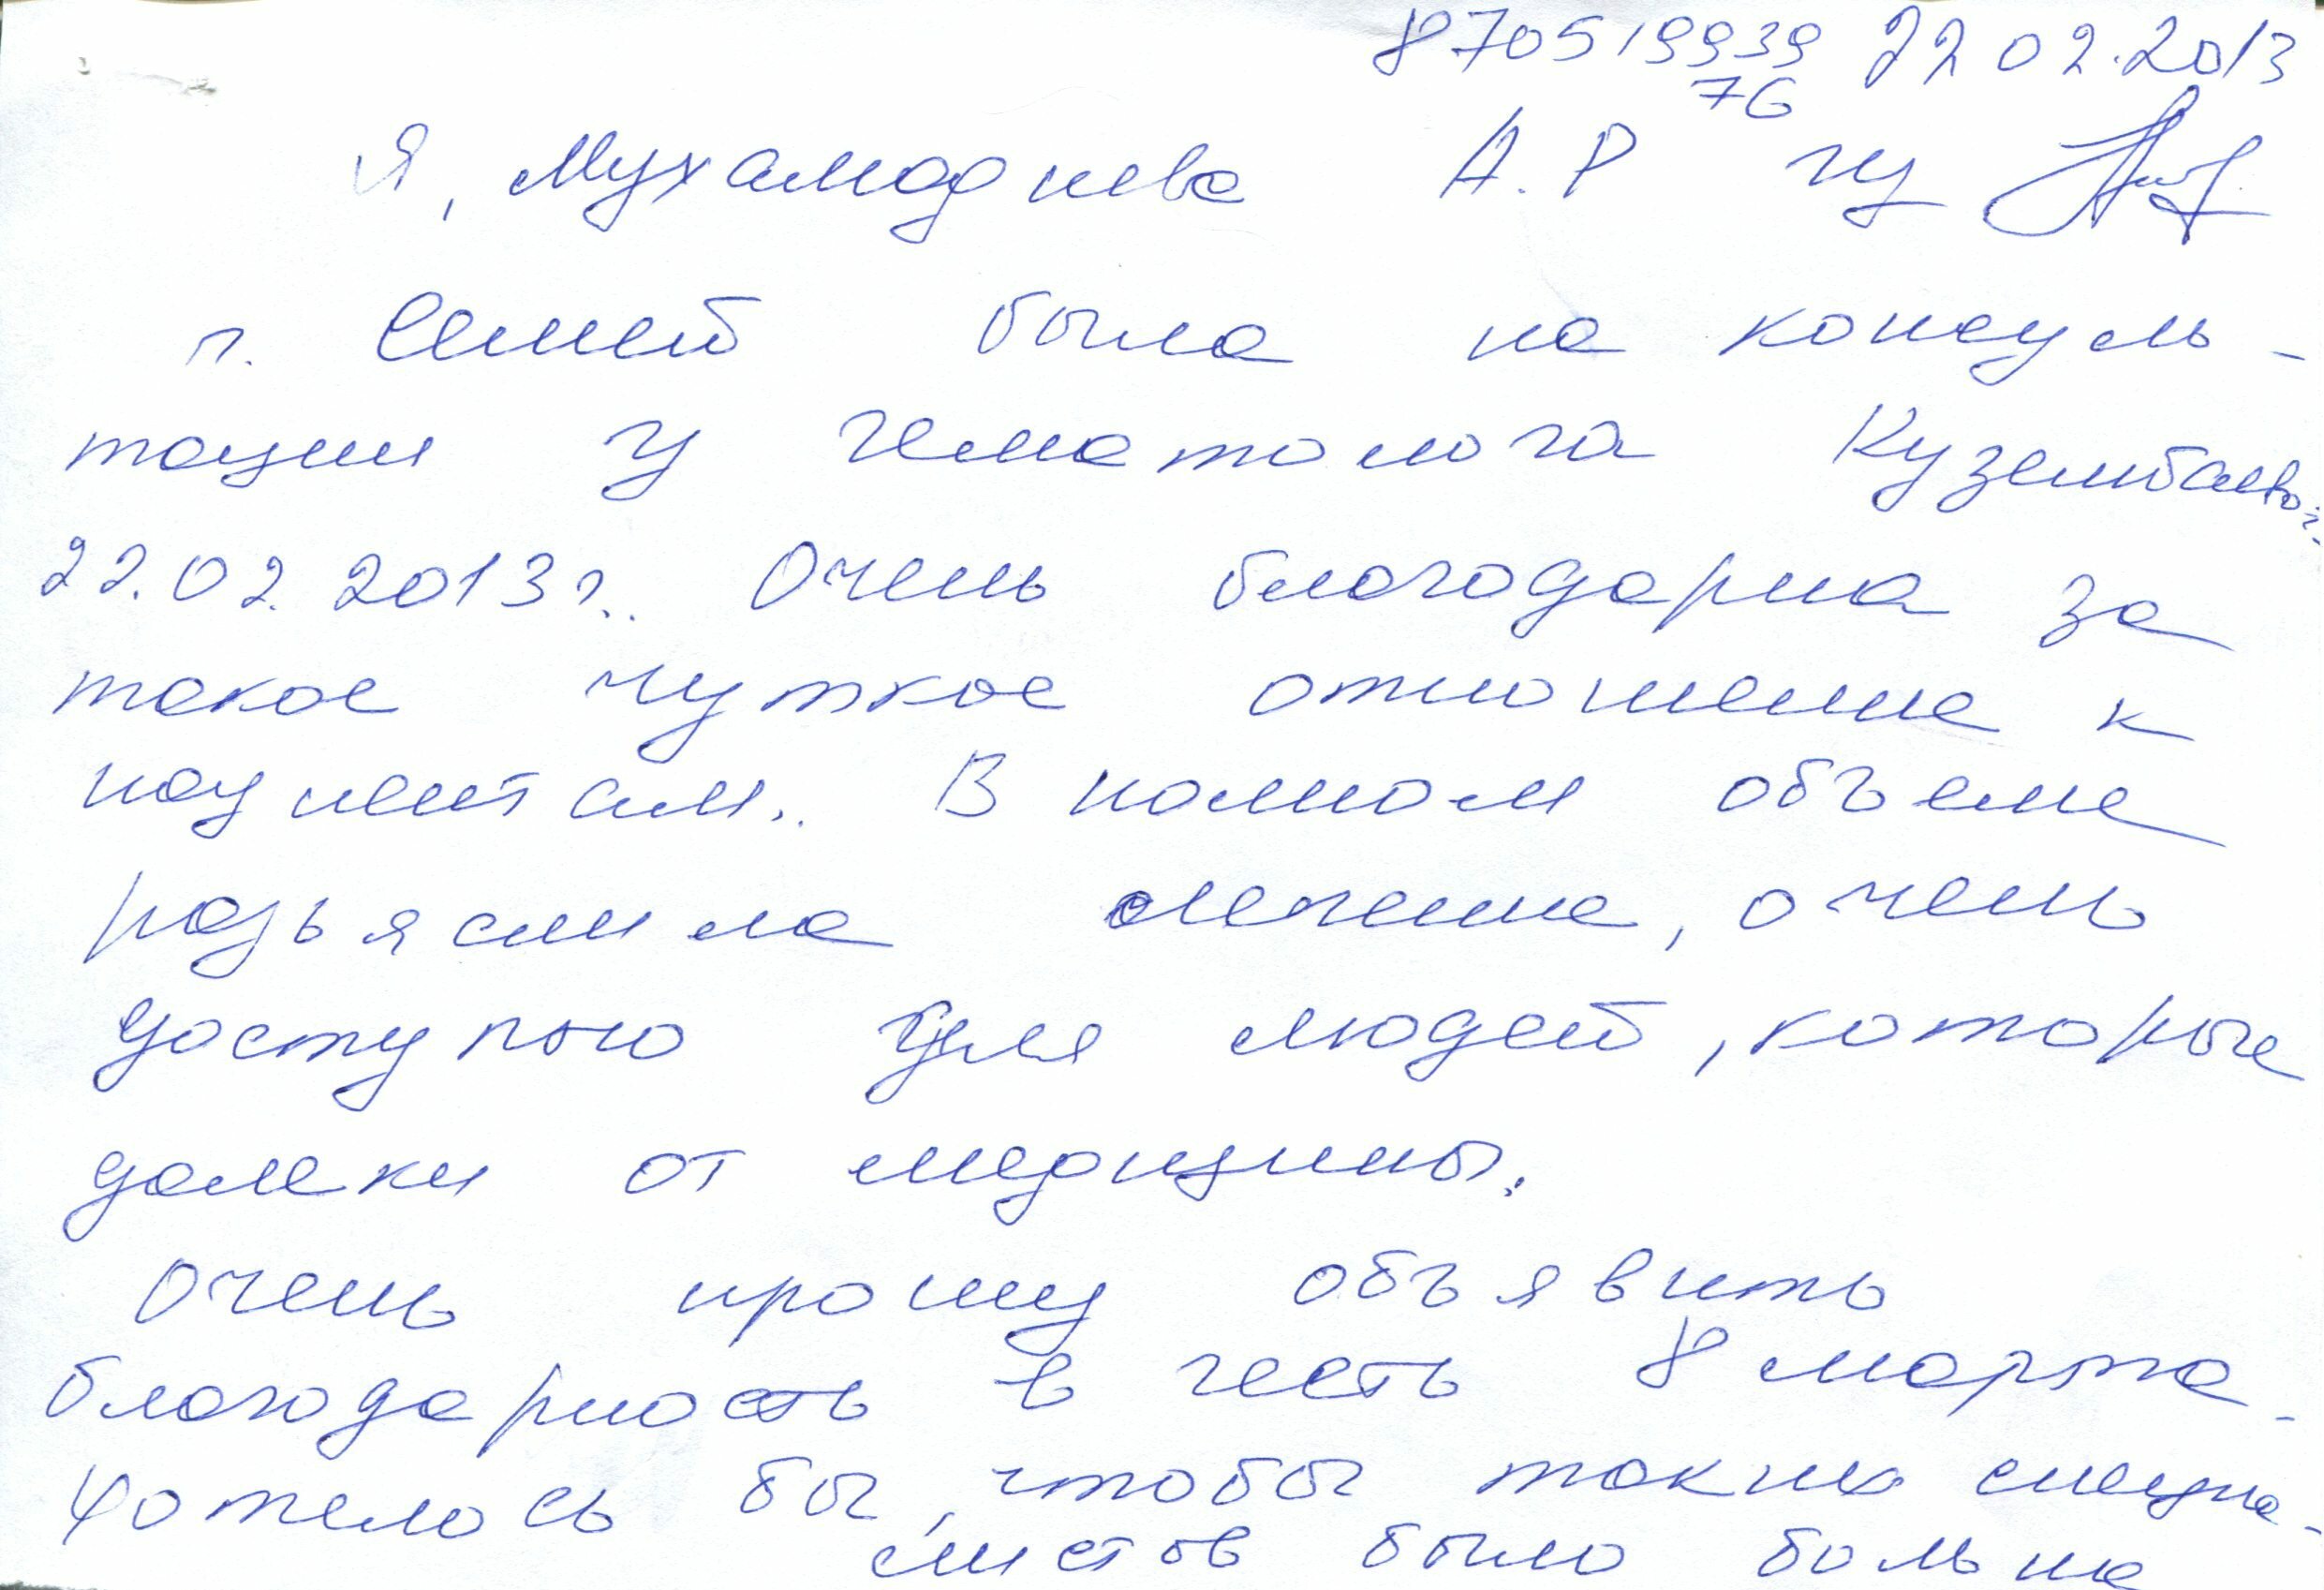 870519939 22 02.2013
76
Я, Мухамадиева А.Р
г. Семей была на консуль-
тации у гематолога Кузембаевой.
22.02.2013г. Очень благодарна за
такое чуткое отношение к
пациентам. В полном объеме
разьяснила лечение, очень
доступно для людей, которые
далеки от медицины.
Очень прошу объявить
благодарность в честь 8 марта.
Хотелось бы, чтобы таких специа-
листов было больше